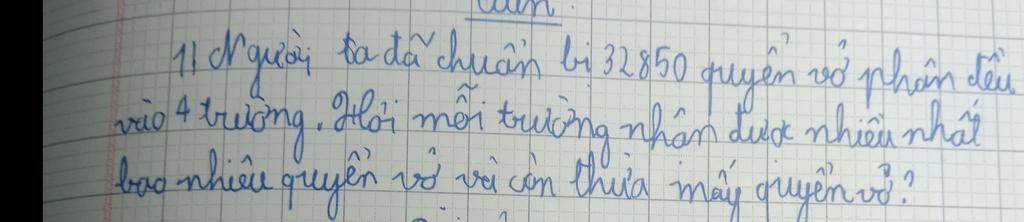 Toán.
1) Người ta đã chuẩn bị 32850 quyển vở phân đều
vào 4 trường. Hỏi mỗi trường nhận được nhiều nhất
bao nhiêu quyển vở và còn thừa mấy quyển vở?